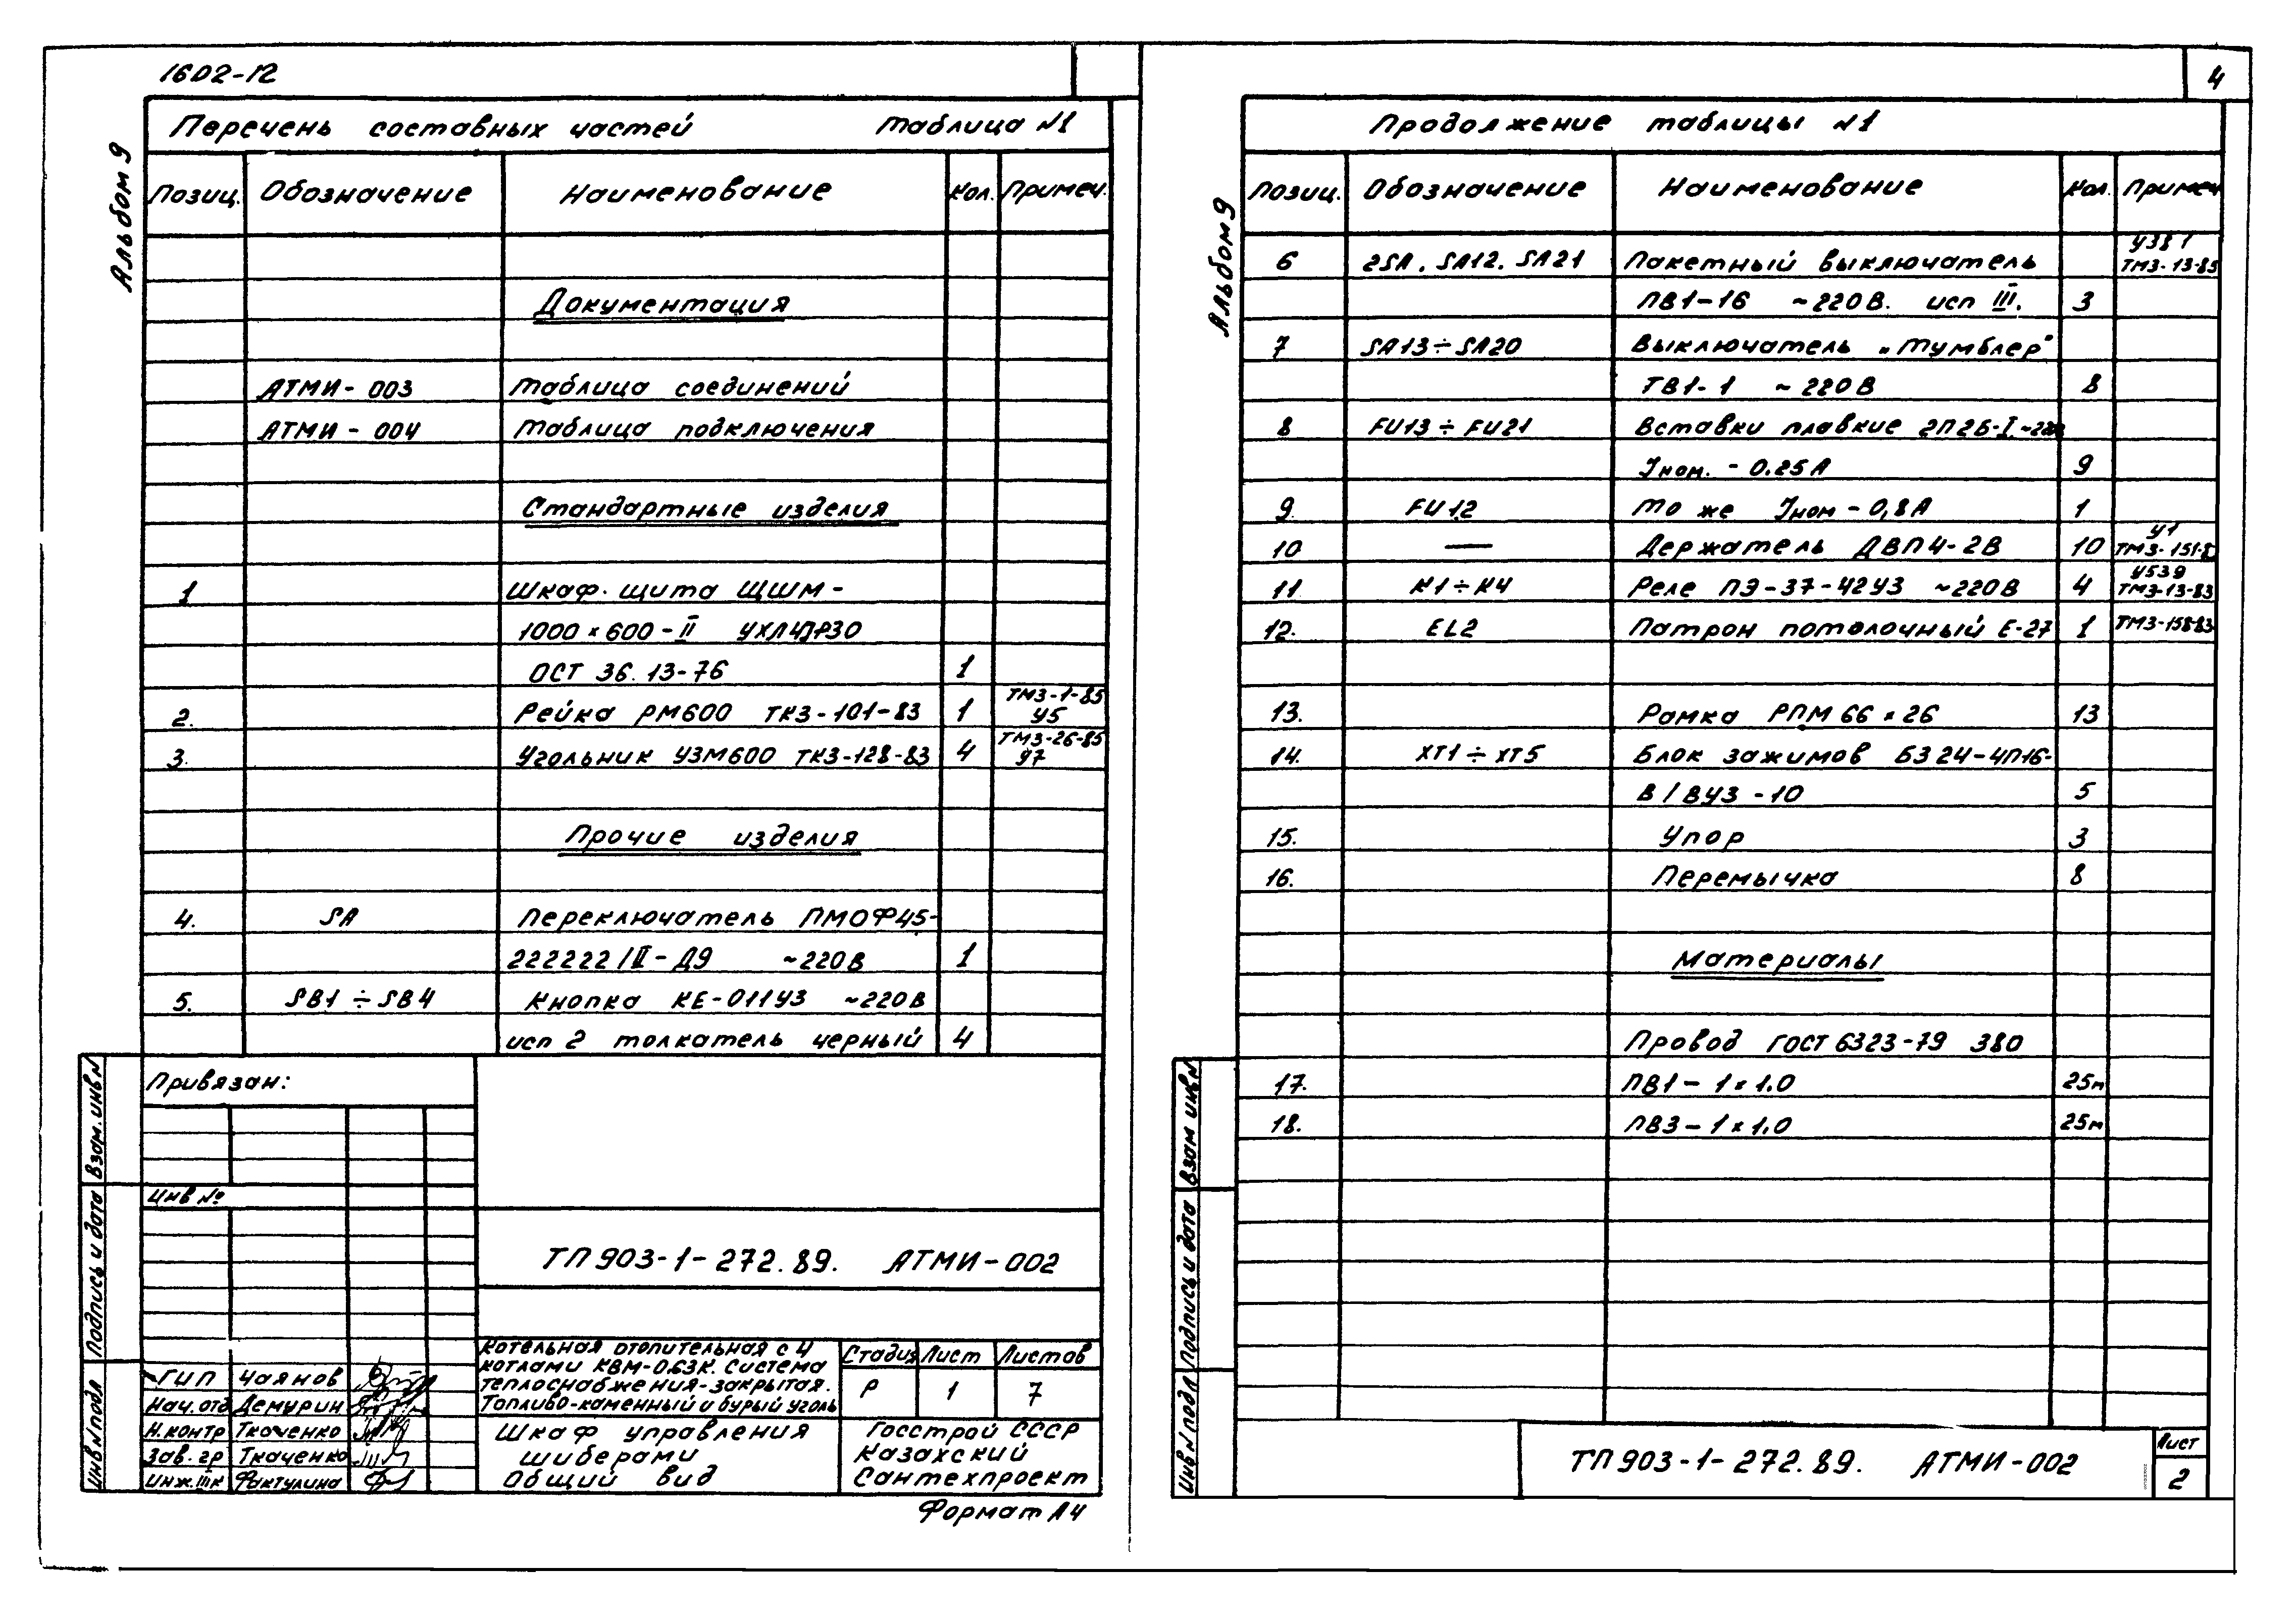 1602-12
Альбом 9
Перечень составных частей Таблица №1
Позиц. Обозначение Наименование Кол. Примеч.
Документация
АТМИ-003 Таблица соединений
АТМИ-004 Таблица подключения
Стандартные изделия
1 Шкаф щита ЩШМ-
1000×600-II УХЛ4
ОСТ 36.13-76 1
2. Рейка РМ600 ТК3-101-83 1 ТМ3-1-85 У5
3. Угольник УЗМ600 ТК3-128-83 4 ТМ3-26-85 У7
Прочие изделия
4. SA Переключатель ПМОФ45-
222222/II-Д9 ~220В 1
5. SB1÷SB4 Кнопка КЕ-011У3 ~220В
исп 2 толкатель черный 4
Привязан:
Инв №
ТП 903-1-272.89. АТМИ-002
Котельная отопительная с 4
котлами КВМ-0.63К. Система
теплоснабжения-закрытая.
Топливо-каменный и бурый уголь
Стадия Лист Листов
Р 1 7
ГИП Чаянов
Нач.отд Демурин
Н.контр Ткаченко
Зав.гр Ткаченко
Инж.IIIк Фактулина
Шкаф управления
шиберами
Общий вид
Госстрой СССР
Казахский
Сантехпроект
Взам.инв№
Подпись и дата
Инв№подл
Формат А4
4
Альбом 9
Продолжение таблицы №1
Позиц. Обозначение Наименование Кол. Примеч
6 2SA, SA12, SA21 Пакетный выключатель ТМ3-13-85
ПВ1-16 ~220В. исп III. 3
7 SA13÷SA20 Выключатель „Тумблер"
ТВ1-1 ~220В 8
8 FU13÷FU21 Вставки плавкие 2П2Б-I
Iном. - 0.25А 9
9. FU12 То же Iном - 0,8А 1
10 — Держатель ДВП4-2В 10 У1
11. К1÷К4 Реле ПЭ-37-42У3 ~220В 4 У539 ТМ3-13-83
12. EL2 Патрон потолочный Е-27 1 ТМ3-158-83
13. Рамка РПМ 66×26 13
14. ХТ1÷ХТ5 Блок зажимов БЗ24-4П16-
В/ВУ3-10 5
15. Упор 3
16. Перемычка 8
Материалы
Провод ГОСТ 6323-79 380
17. ПВ1-1×1.0 25м
18. ПВ3-1×1.0 25м
Взам инв№
Подпись и дата
Инв№подл
ТП 903-1-272.89. АТМИ-002
Лист
2